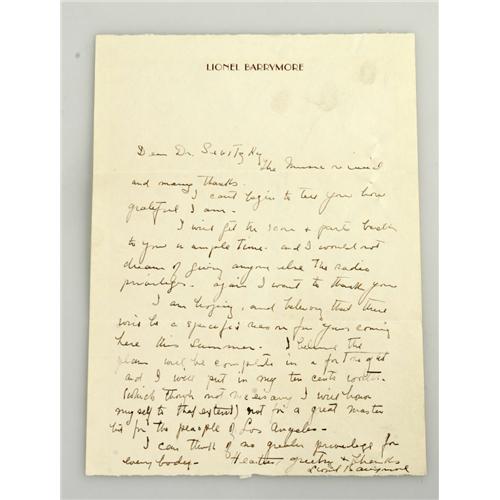 LIONEL BARRYMORE
Dear Dr.
The Music
and many thanks.
I can't begin to tell you how
grateful I am -
I will get the score & parts back
to you in ample time. and I would not
dream of giving anyone else The radio
privileges. again I want to thank you
I am hoping, and believing that there
will be a specific reason for your coming
here this summer. I believe the
plans will be complete in a fortnight
and I will put in my ten cents worth.
(which though not necessary I will have
myself to that extent) not for a great master
but for the people of Los Angeles -
I can think of no greater privilege for
everybody -
greeting & Thanks
Lionel Barrymore